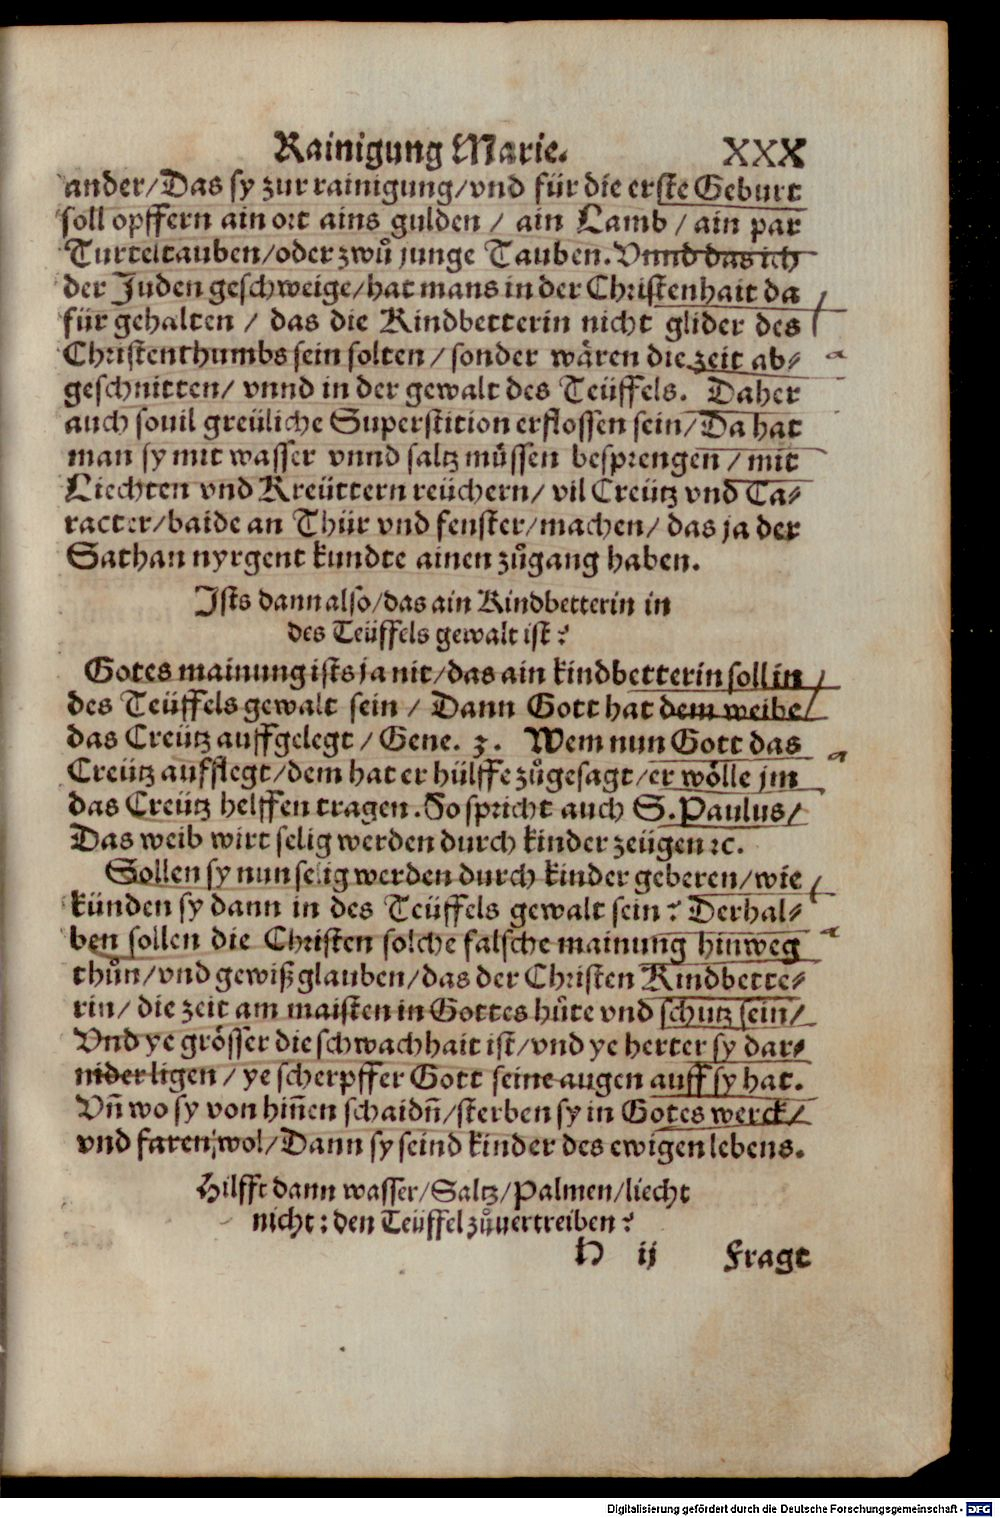 Rainigung Marie. XXX
ander/Das sy zur rainigung/vnd für die erste Geburt
soll opffern ain ort ains gulden / ain Lamb / ain par
Turteltauben/oder zwů junge Tauben. Vnnd das ich
der Juden geschweige/hat mans in der Christenhait da
für gehalten / das die Kindbetterin nicht glider des
Christenthumbs sein solten / sonder wåren die zeit ab⸗
geschnitten/ vnnd in der gewalt des Teüffels. Daher
auch souil greüliche Superstition erflossen sein/Da hat
man sy mit wasser vnnd saltz müssen besprengen / mit
Liechten vnd Kreüttern reüchern/ vil Creütz vnd Ca⸗
racter/baide an Thür vnd fenster/machen/ das ja der
Sathan nyrgent kundte ainen zůgang haben.
Ists dann also/das ain Kindbetterin in
des Teüffels gewalt ist?
Gotes mainung ists ja nit/das ain kindbetterin soll in
des Teüffels gewalt sein / Dann Gott hat dem weibe
das Creütz auffgelegt / Gene. 3. Wem nun Gott das
Creütz aufflegt/dem hat er hülffe zůgesagt/er wölle jm
das Creütz helffen tragen. So spricht auch S. Paulus/
Das weib wirt selig werden durch kinder zeügen ꝛc.
Sollen sy nun selig werden durch kinder geberen/wie
künden sy dann in des Teüffels gewalt sein? Derhal⸗
ben sollen die Christen solche falsche mainung hinweg
thůn/vnd gewiß glauben/das der Christen Kindbette⸗
rin/ die zeit am maisten in Gottes hůte vnd schutz sein/
Vnd ye grösser die schwachhait ist/vnd ye herter sy dar⸗
nider ligen / ye scherpffer Gott seine augen auff sy hat.
Vn̄ wo sy von hiñen schaidn̄/sterben sy in Gotes werck/
vnd faren wol/Dann sy seind kinder des ewigen lebens.
Hilfft dann wasser/Saltz/Palmen/liecht
nicht: den Teüffel zůuertreiben?
H ij Fragt
Digitalisierung gefördert durch die Deutsche Forschungsgemeinschaft - DFG